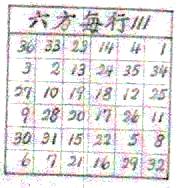 六方每行111
36 33 23 14 4 1
3 2 13 24 35 34
27 10 19 18 12 25
9 28 20 17 26 11
30 31 15 22 5 8
6 7 21 16 29 32